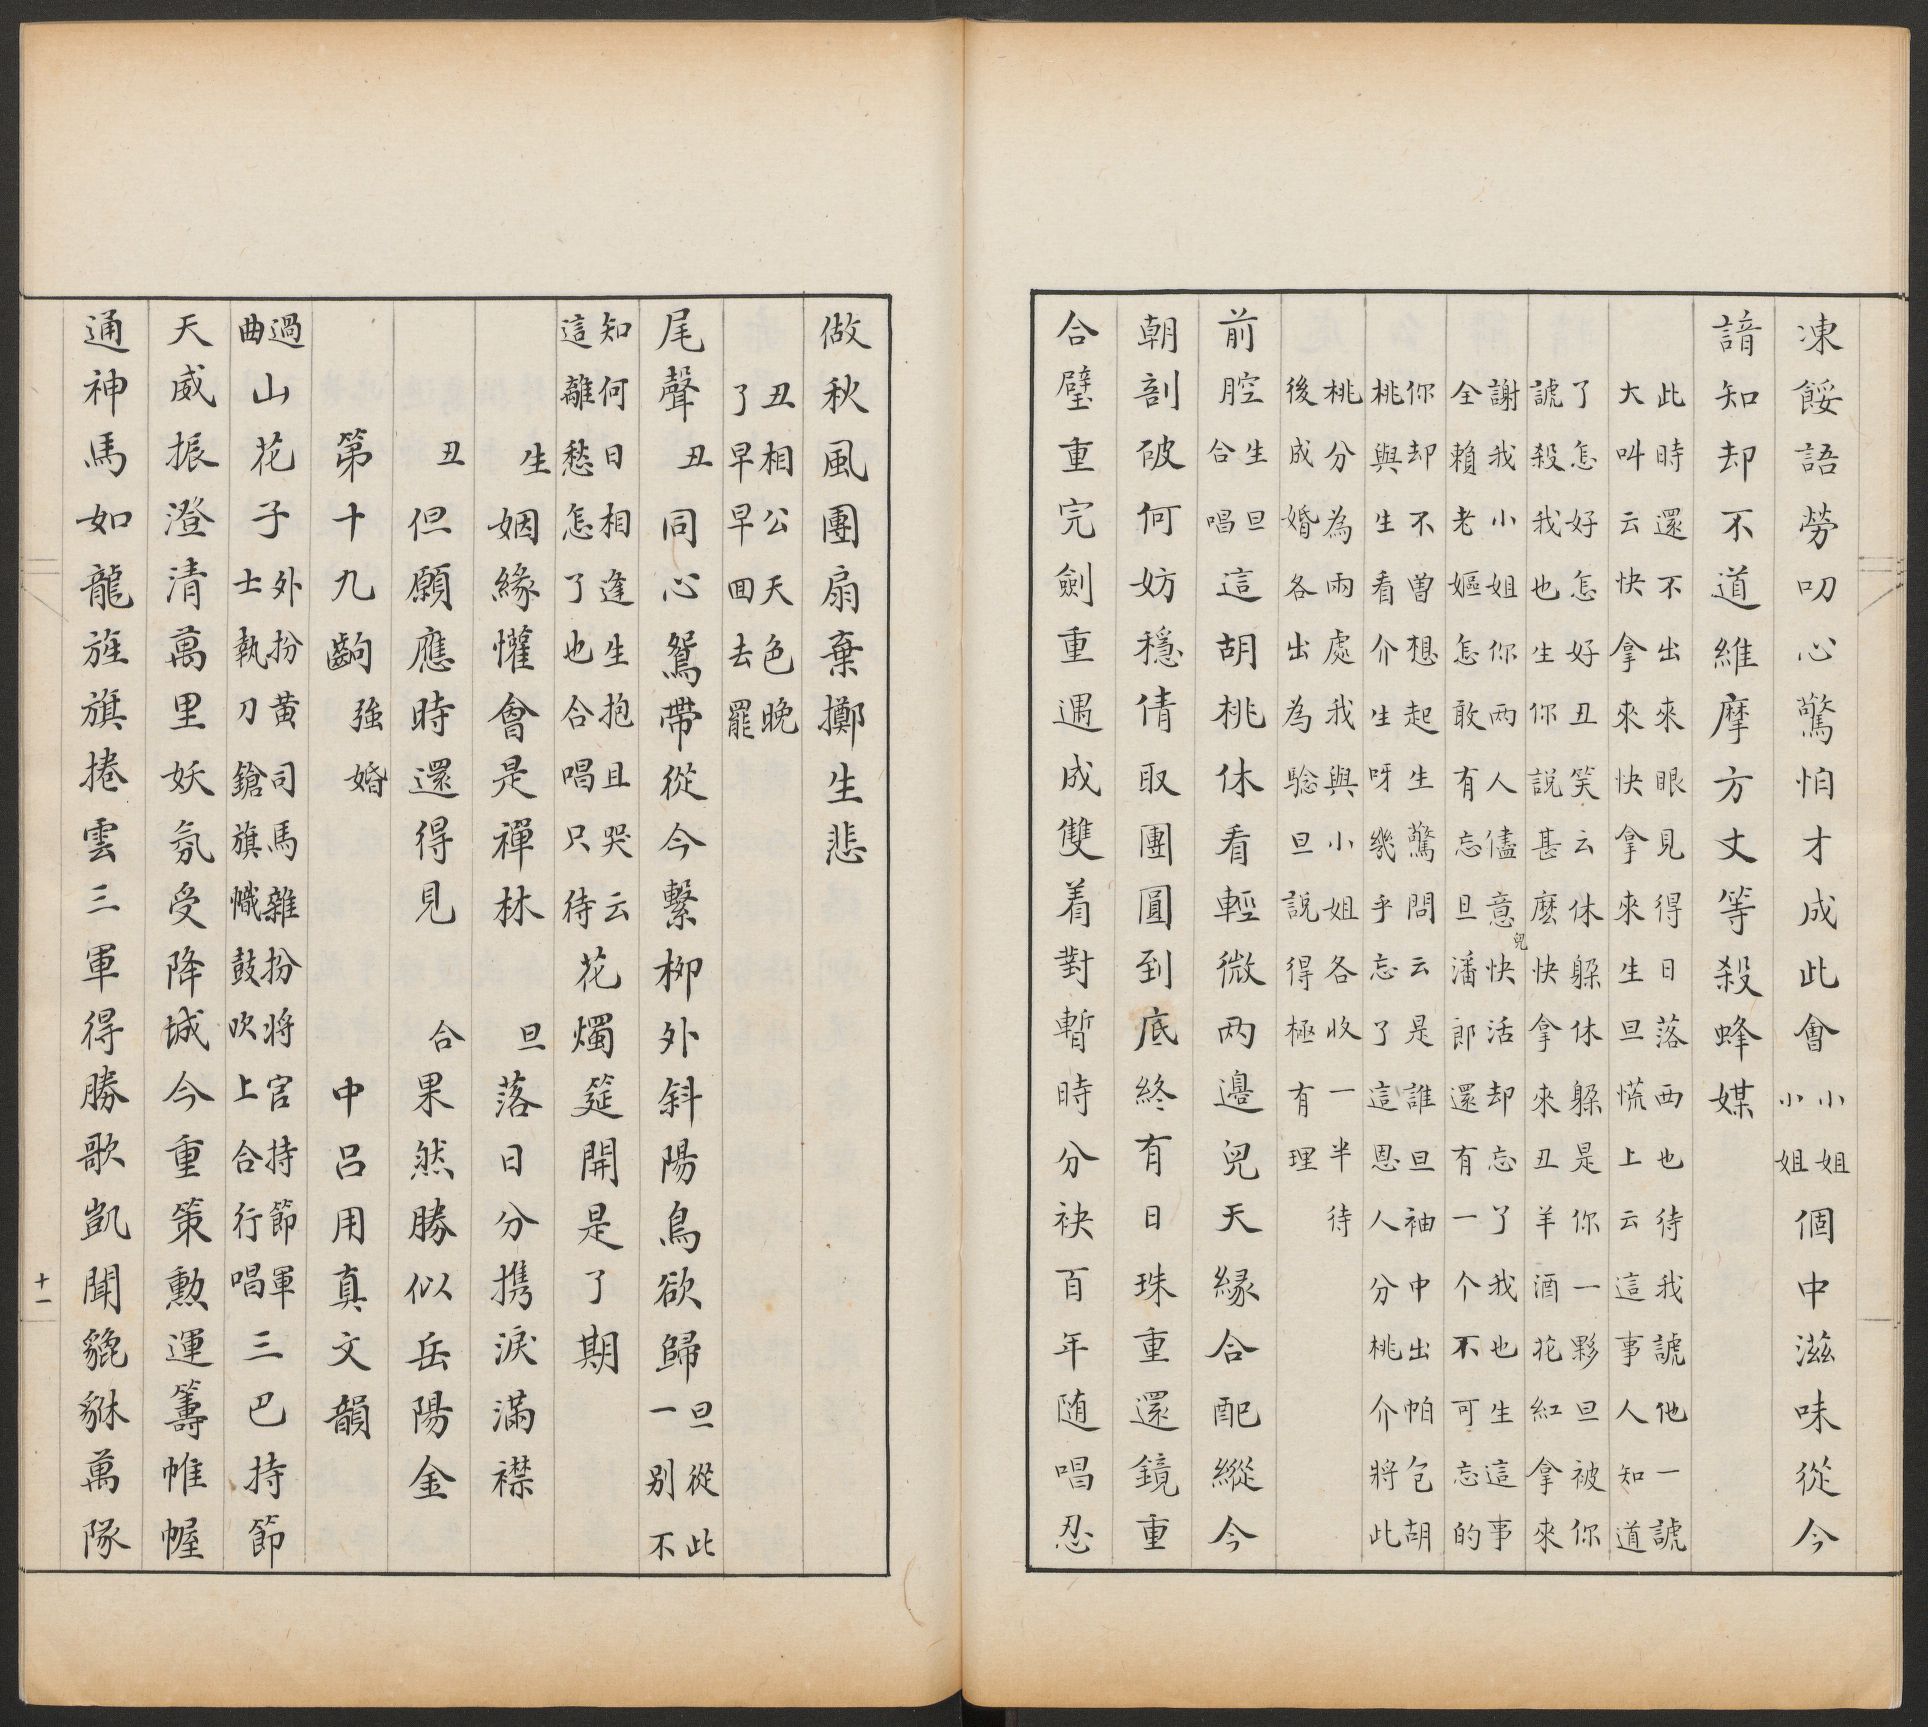 凍餒語勞叨心驚怕才成此會小姐小姐個中滋味從今
諳知却不道維摩方丈等殺蜂媒
此時還不出來眼見得日落西也待我諕他一諕
大叫云快拿來快拿來生旦慌上云這事人知道
了怎好怎好丑笑云休躲休躲是你一夥旦被你
諕殺我也生你説甚麽快拿來丑羊酒花紅拿來
謝我小姐你兩人儘意兒快活却忘了我也生這事
全賴老嫗怎敢有忘旦潘郎還有一个不可忘的
你却不曽想起生驚問云是誰旦袖中出帕包胡
桃與生看介生呀幾乎忘了這恩人分桃介將此
桃分為兩處我與小姐各收一半待
後成婚各出為騐旦說得極有理
前腔生旦合唱這胡桃休看輕微两邊兒天緣合配縱今
朝剖破何妨穩倩取團圓到底終有日珠重還鏡重
合璧重完劍重遇成雙着對暫時分袂百年随唱忍
做秋風團扇棄擲生悲
丑相公天色晚
了早早回去罷
尾聲丑同心鴛帶從今繫柳外斜陽鳥欲歸旦從此一别不
知何日相逢生抱旦哭云
這離愁怎了也合唱只待花燭筵開是了期
生姻緣懽會是禪林 旦落日分携淚滿襟
丑但願應時還得見 合果然勝似岳陽金
第十九齣強婚 中呂用真文韻
過曲山花子外扮黃司馬雜扮將官持節軍士執刀鎗旗幟鼓吹上合行唱三巴持節
天威振澄清萬里妖氛受降城今重策勲運籌帷幄
通神馬如龍旌旗捲雲三軍得勝歌凱聞貔貅萬隊
十一